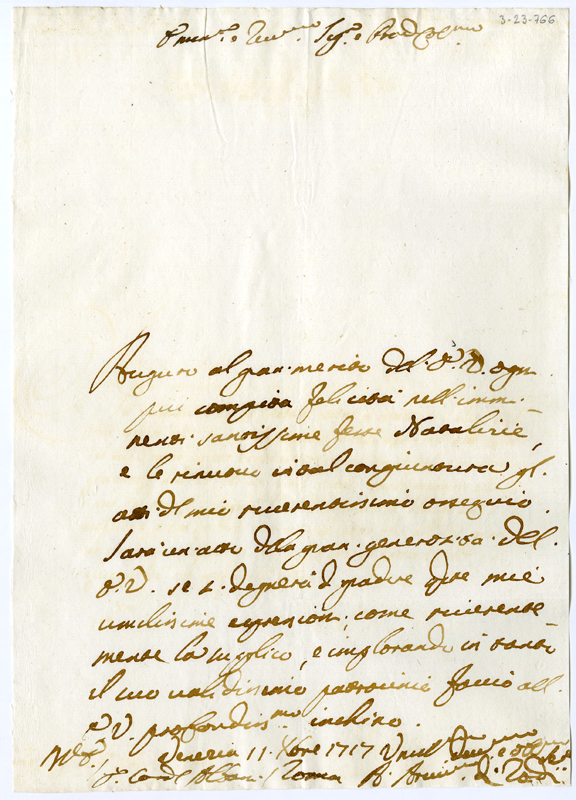 3-23-766
Emin.mo e Rev.mo Sig.r e Prone
Auguro al gran merito dell'E. V. ogni
più compita felicità nell'immi-
nenti santissime feste Natalizie,
e le rinuovo in tal congiuntura gl'
atti del mio riverentissimo ossequio.
Sarà un atto della gran generosità dell'
E. V. se si degnerà di gradire queste mie
umilissime espressioni, come riverente-
mente la supplico, e implorando in tanto
il suo validissimo patrocinio faccio all'
E. V. profondiss.mo inchino.
Venezia 11. Xbre 1717
Card. Albani Roma